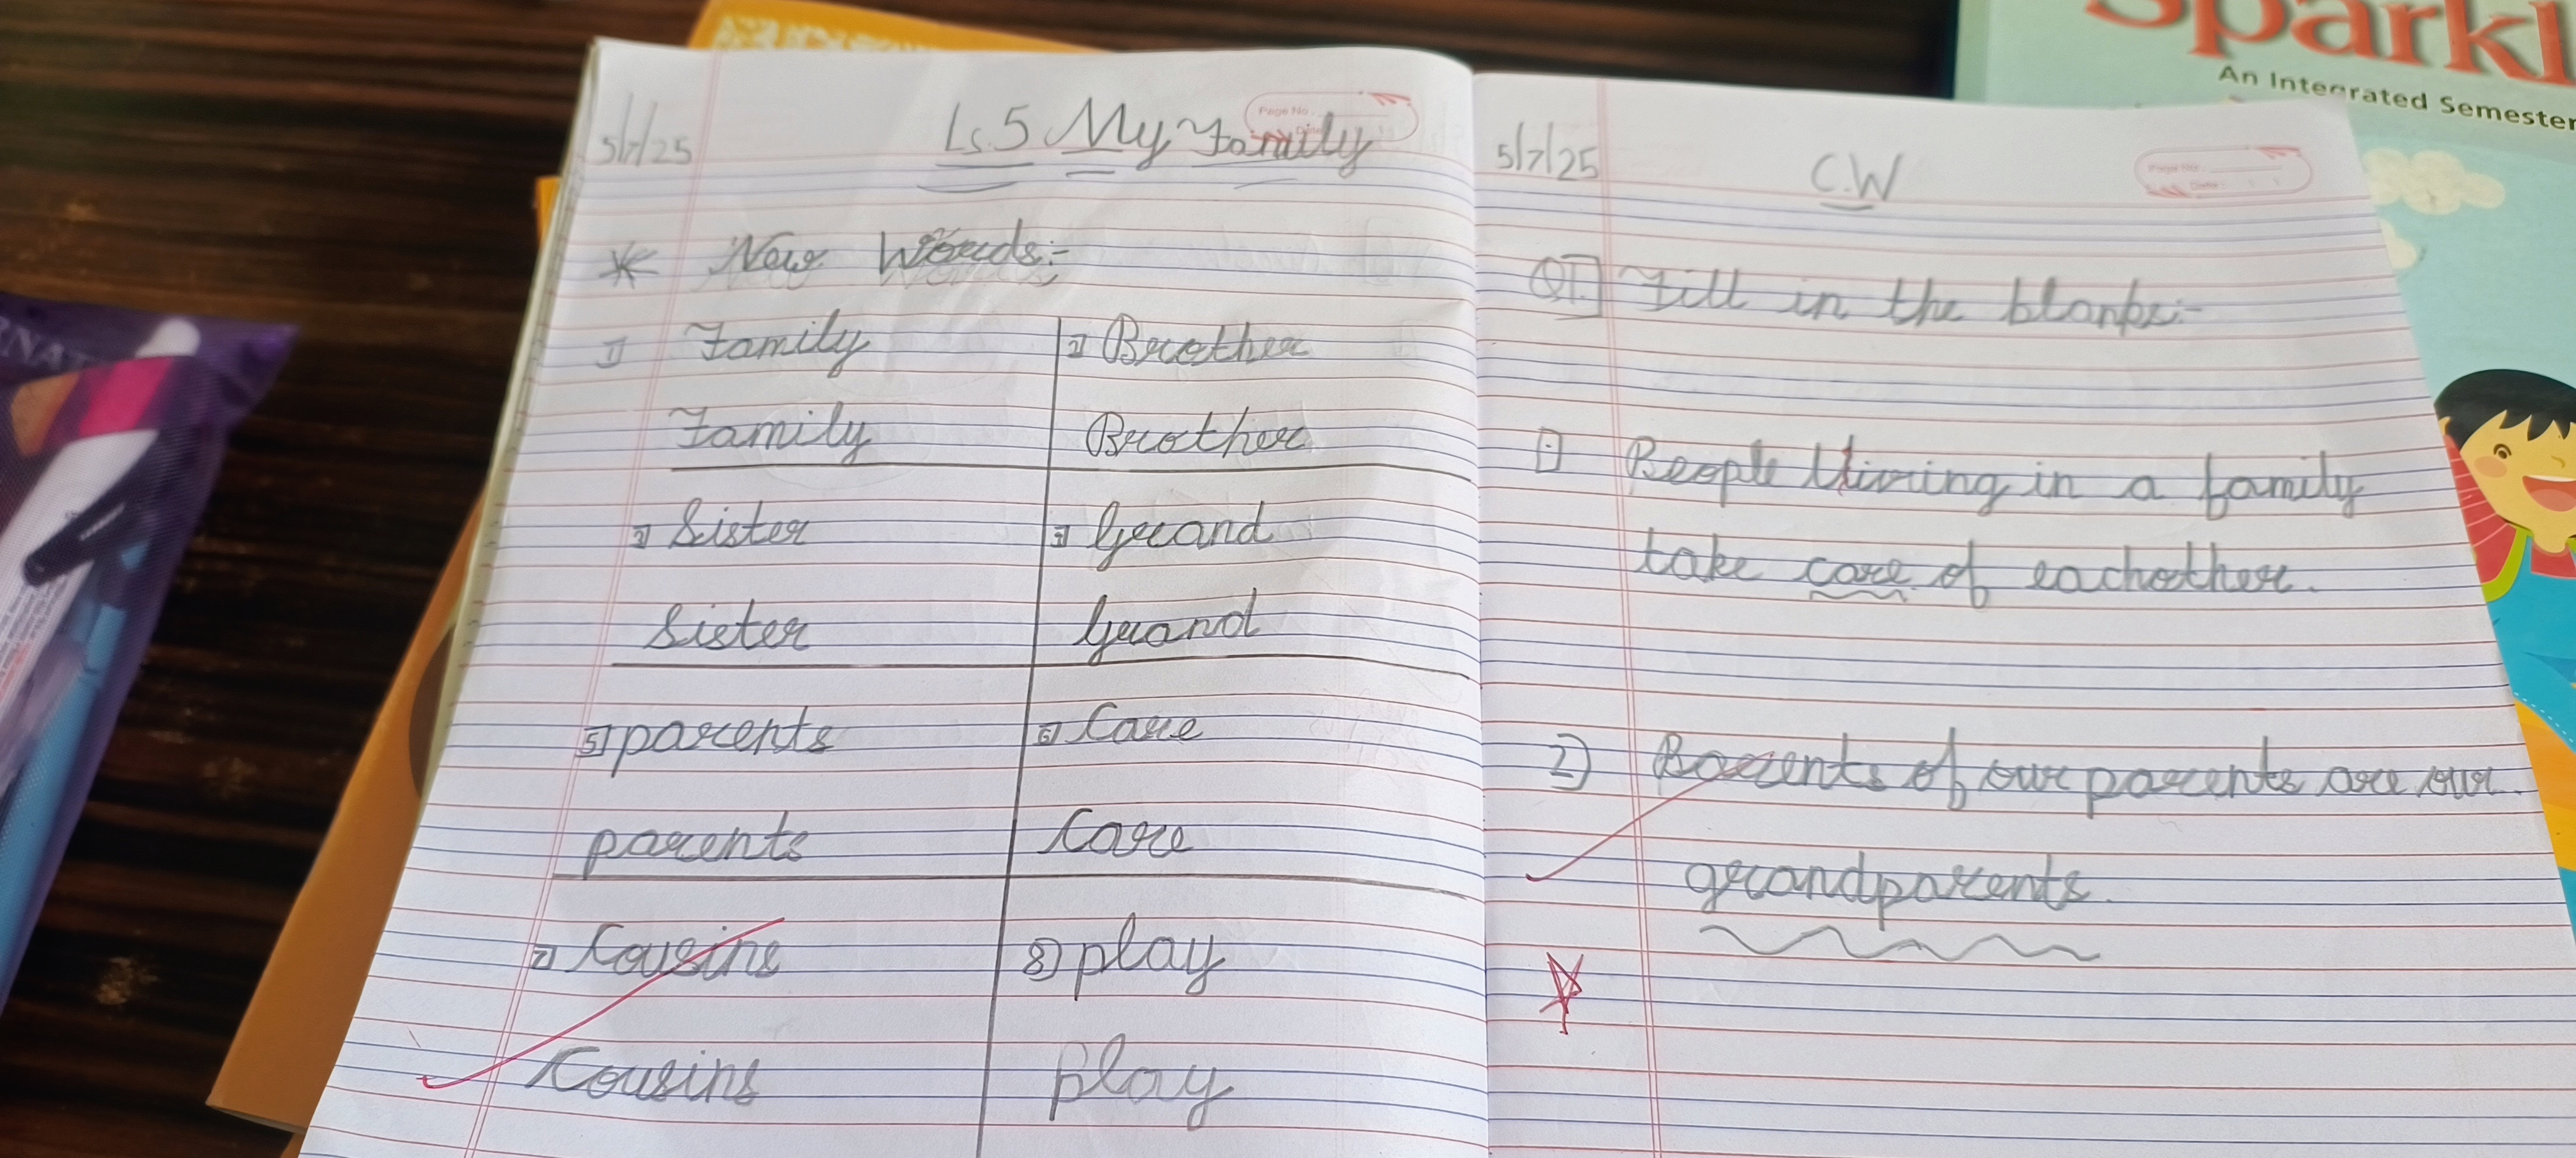 5/7/25
Ls.5 My Family
* New Words:-
1) Family
2) Brother
Family
Brother
3) Sister
Grand
Sister
Grand
5) parents
6) Care
parents
Care
7) Cousins
8) play
Cousins
play
5/7/25
C.W
Q1] Fill in the blanks:-
1) People living in a family
take care of eachother.
2) Parents of our parents are our
grandparents.
Sparkl
An Integrated Semester
Page No.
Date: